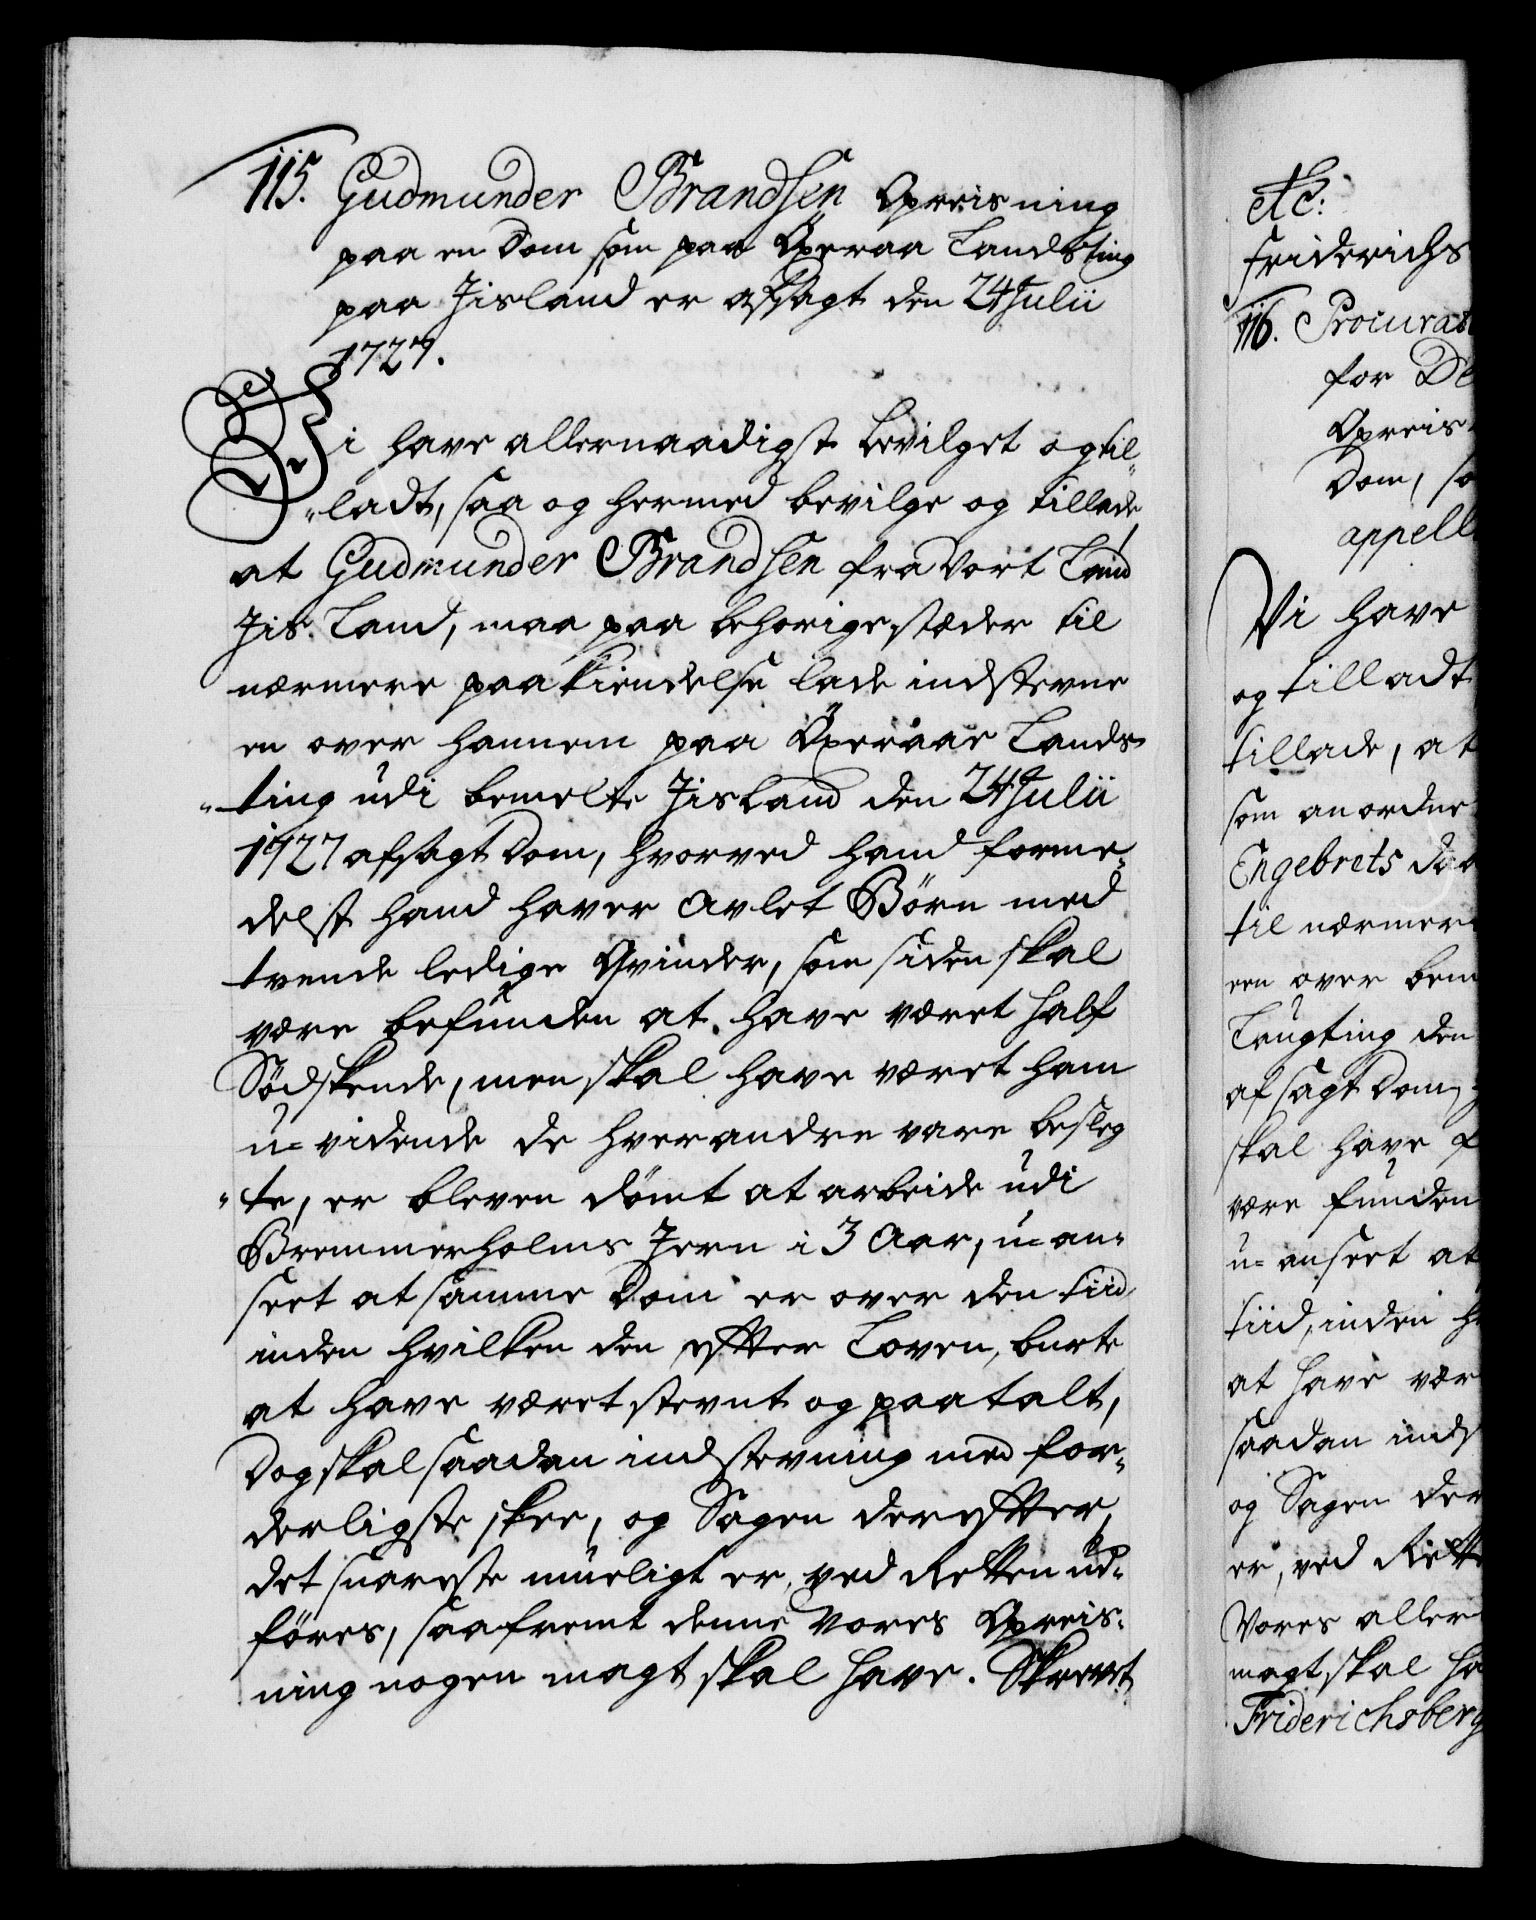 115. Gudmunder Brandsen Opreisning
paa en Dom som paa Öxeraa Landsting
paa Jisland er afsagt den 24 Julii
1727.
Vi have allernaadigst bevilget og til„
„ladt, saa og hermed bevilge og tillade,
at Gudmunder Brandsen fra vort Land
Jis Land, maa paa behörige stæder til
nærmere paakiendelse lade indstevne
en over hannem paa Öxeraae Lands
„ting udi bemelte Jisland den 24 Julii
1727 afsagt Dom, hvorved hand forme„
delst hand haver avlet Börn med
tvende ledige Qvinder, som siden skal
være befunden at have været half
Södskende, men skal have været ham
u-vidende de hverandre vare besleg
„te, er bleven dömt at arbeide udi
Bremmerholms Jern i 3 Aar, u-an-
seet at samme Dom er over den tiid
inden hvilken den efter Loven, burte
at have været stevnt og paatalt,
Dog skal saadan indstevning med for„
derligste skee, og Sagen derefter,
det snareste mueligt er, ved Retten ud-
föres, saafremt denne Vores Opreis-
ning nogen magt skal have. Skrevet
etc:
Friderichs
116. Procurat
for De
Opreis
Dom, so
appell
Vi have
og tilladt
tillade, at
som anordne
Engebrets da
til nærmer
een over bem
Laugting den
afsagt Dom,
skal have f
være funden
u-anseet at
tiid, inden h
at have vær
saadan inds
og Sagen der
er, ved Rette
Vores aller
magt skal ha
Friderichsberg